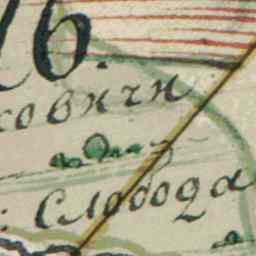 16.
ковичи
: Слобода